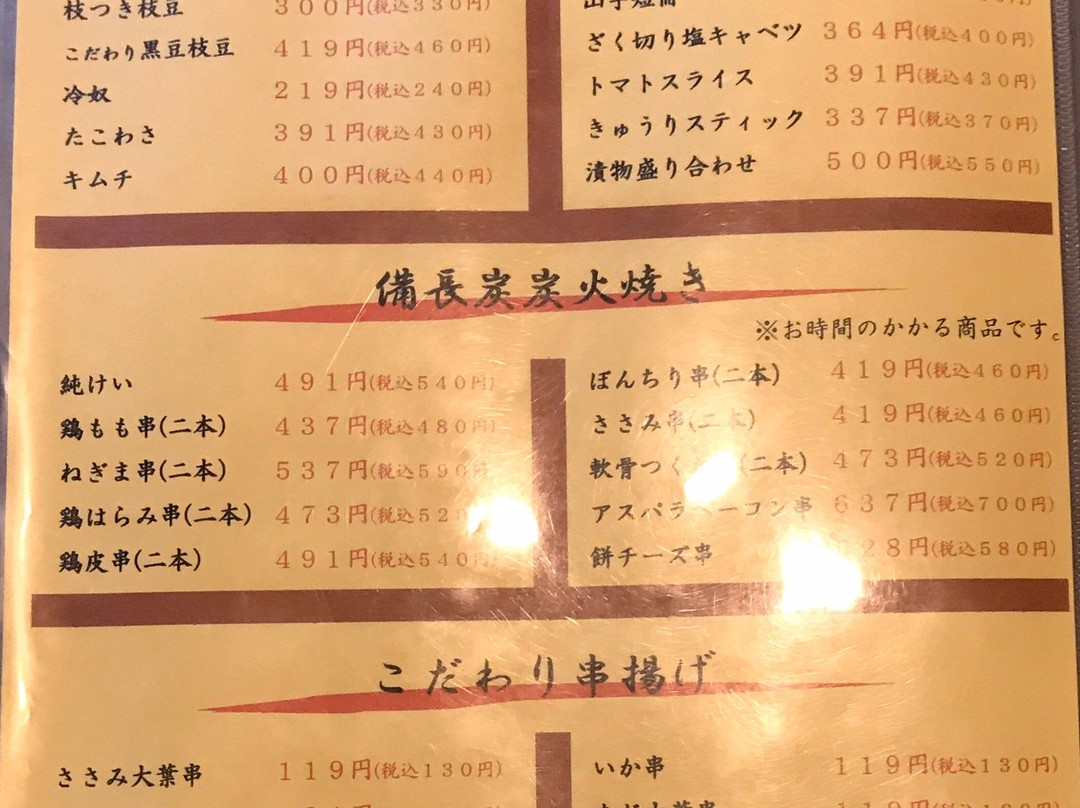 枝つき枝豆 300円(税込330円)
こだわり黒豆枝豆 419円(税込460円)
冷奴 219円(税込240円)
たこわさ 391円(税込430円)
キムチ 400円(税込440円)
ざく切り塩キャベツ 364円(税込400円)
トマトスライス 391円(税込430円)
きゅうりスティック 337円(税込370円)
漬物盛り合わせ 500円(税込550円)
備長炭炭火焼き
※お時間のかかる商品です。
純けい 491円(税込540円)
鶏もも串(二本) 437円(税込480円)
ねぎま串(二本) 537円(税込590円)
鶏はらみ串(二本) 473円(税込520
鶏皮串(二本) 491円(税込540円)
ぼんちり串(二本) 419円(税込460円)
ささみ串(二本) 419円(税込460円)
軟骨つく (二本) 473円(税込520円)
アスパラベーコン串 637円(税込700円)
餅チーズ串 28円(税込580円)
こだわり串揚げ
ささみ大葉串 119円(税込130円)
いか串 119円(税込130円)